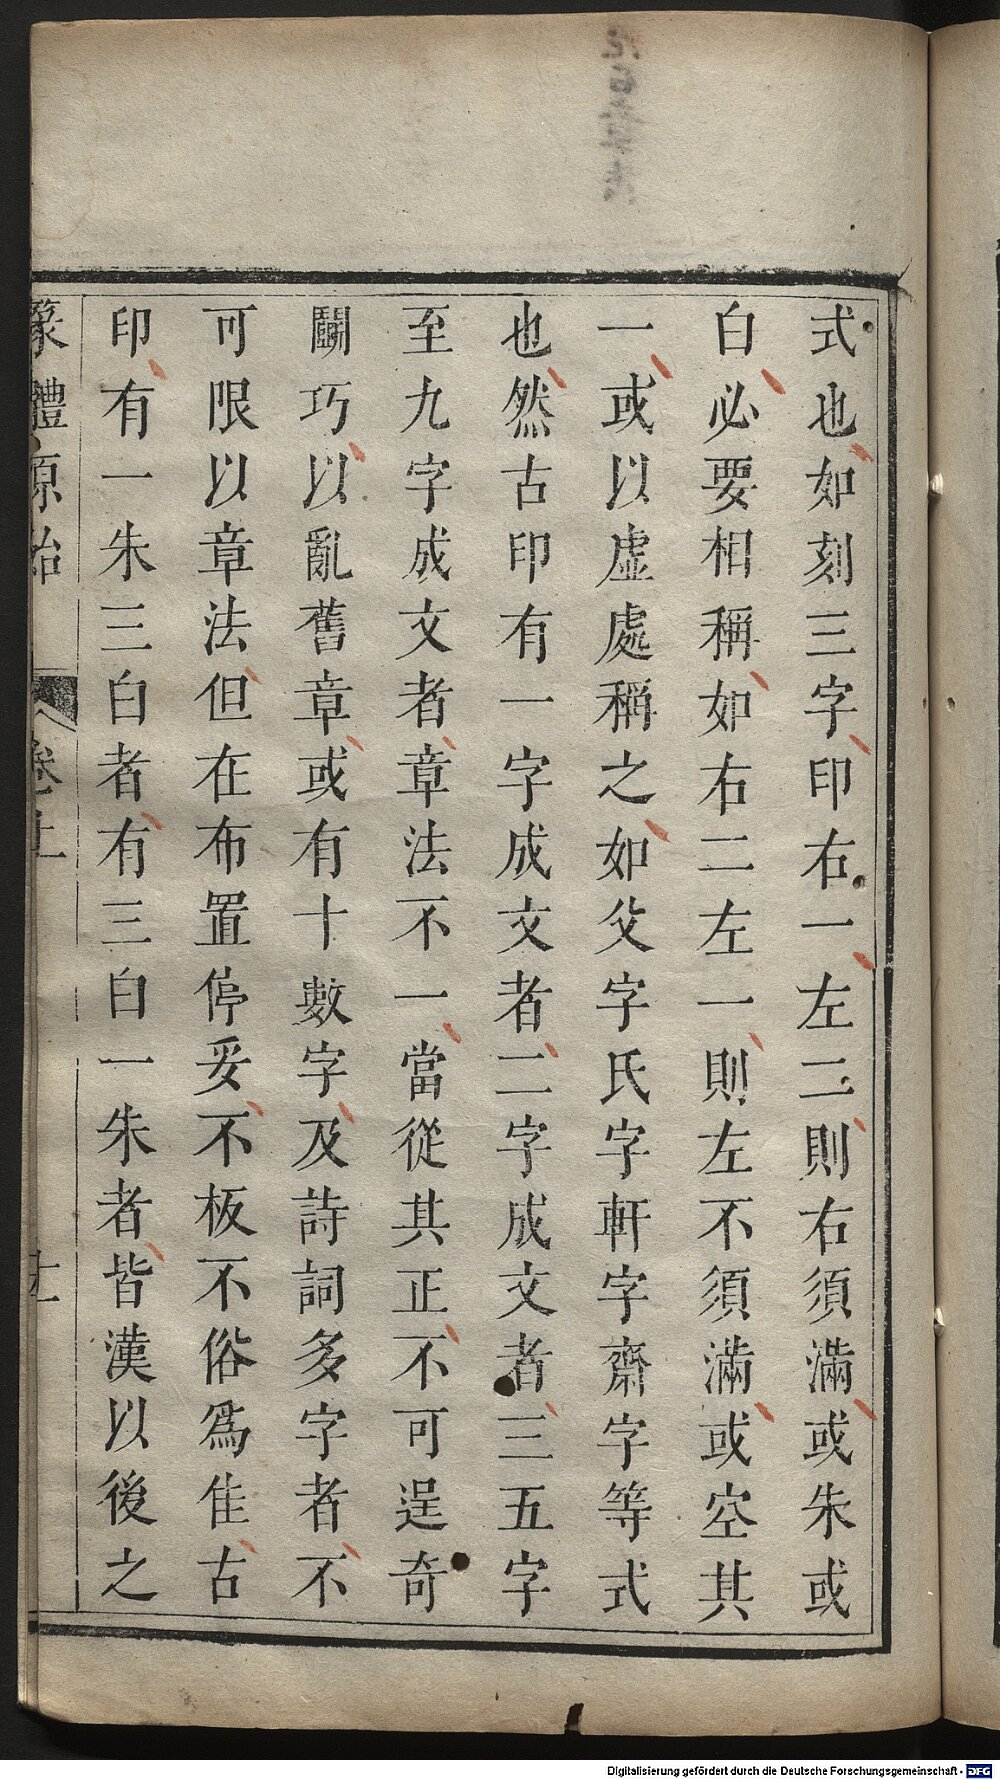 式也如刻三字印右一左二則右須滿或朱或
白必要相稱如右二左一則左不須滿或空其
一或以虛處稱之如父字氏字軒字齋字等式
也然古印有一字成文者二字成文者三五字
至九字成文者章法不一當從其正不可逞奇
鬭巧以亂舊章或有十數字及詩詞多字者不
可限以章法但在布置停妥不板不俗爲佳古
印有一朱三白者有三白一朱者皆漢以後之
篆體原始 卷上
Digitalisierung gefördert durch die Deutsche Forschungsgemeinschaft - DFG